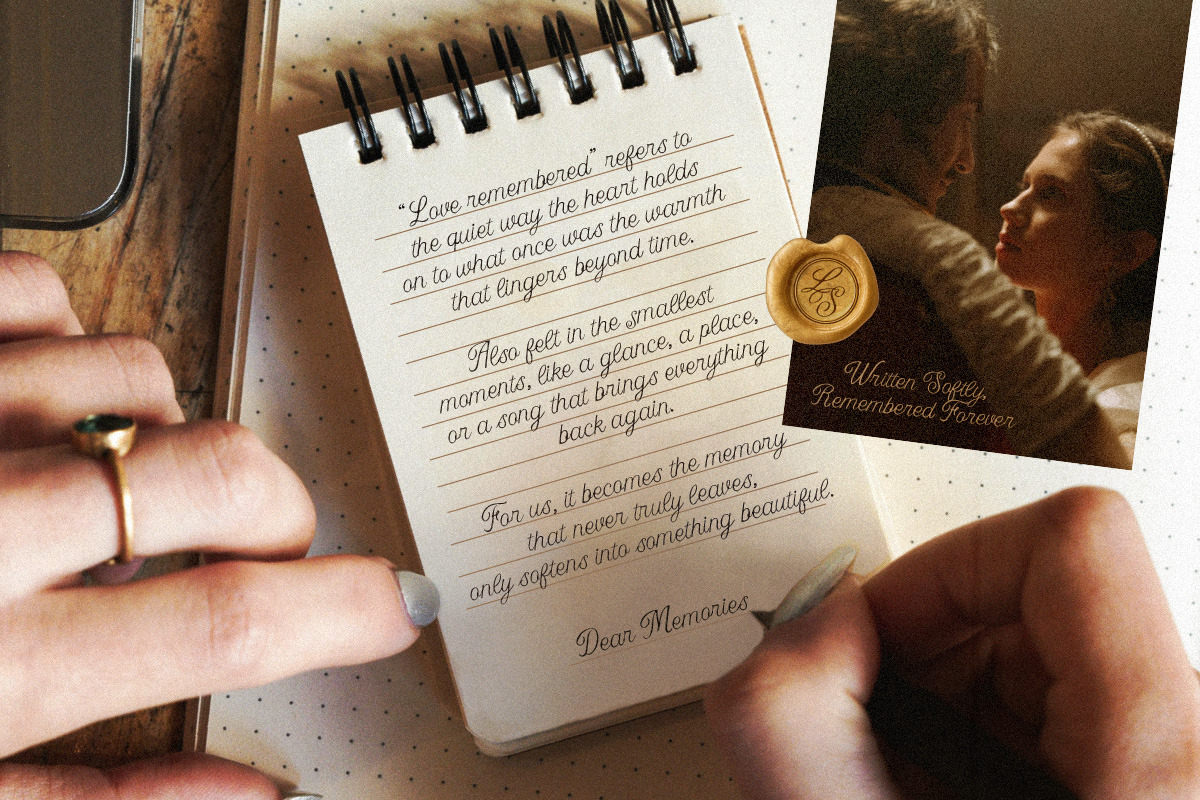 “Love remembered” refers to
the quiet way the heart holds
on to what once was the warmth
that lingers beyond time.
Also felt in the smallest
moments, like a glance, a place,
or a song that brings everything
back again.
For us, it becomes the memory
that never truly leaves,
only softens into something beautiful.
Dear Memories
LS
Written Softly,
Remembered Forever